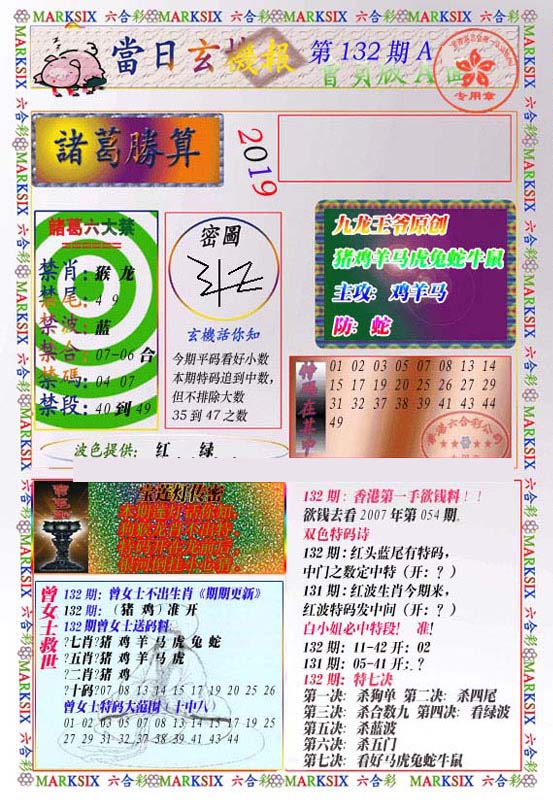 MARKSIX 六合彩 MARKSIX 六合彩 MARKSIX 六合彩 MARKSIX 六合彩
當日玄機報 第 132 期 A
专用章
諸葛勝算
2019
諸葛六大禁
禁肖:猴 龙
禁尾:4 9
禁波:蓝
禁合:07-06 合
禁碼:04 07
禁段:40 到 49
密圖
玄機話你知
今期平码看好小数
本期特码追到中数,
但不排除大数
35 到 47 之数
九龙王爷原创
猪鸡羊马虎兔蛇牛鼠
主攻: 鸡羊马
防: 蛇
特码在其中
01 02 03 05 07 08 13 14
15 17 19 20 25 26 27 29
31 32 37 38 39 41 43 44
49
香港六合彩公司
波色提供: 红 . . 绿 . .
宝莲灯传密
曾女士救世
132 期: 曾女士不出生肖《期期更新》
132 期: (猪 鸡) 准 开
132 期曾女士送码料:
?七肖?猪 鸡 羊 马 虎 兔 蛇
?五肖?猪 鸡 羊 马 虎
?二肖?猪 鸡
?十码?07 08 13 14 15 17 19 20 25 26
曾女士特码大范围 (十中八)
01 02 03 05 07 08 13 14 15 17 19 25
27 29 31 32 37 38 39 41 43 44
132 期: 香港第一手欲钱料!!
欲钱去看 2007 年第 054 期.
双色特码诗
132 期: 红头蓝尾有特码,
中门之数定中特 (开: ?)
131 期: 红波生肖今期来,
红波特码发中间 (开: ?)
白小姐必中特段! 准!
132 期: 11-42 开: 02
131 期: 05-41 开: ?
132 期: 特七决
第一决: 杀狗单 第二决: 杀四尾
第三决: 杀合数九 第四决: 看绿波
第五决: 杀蓝波
第六决: 杀五门
第七决: 看好马虎兔蛇牛鼠
MARKSIX 六合彩 MARKSIX 六合彩 MARKSIX 六合彩 MARKSIX 六合彩